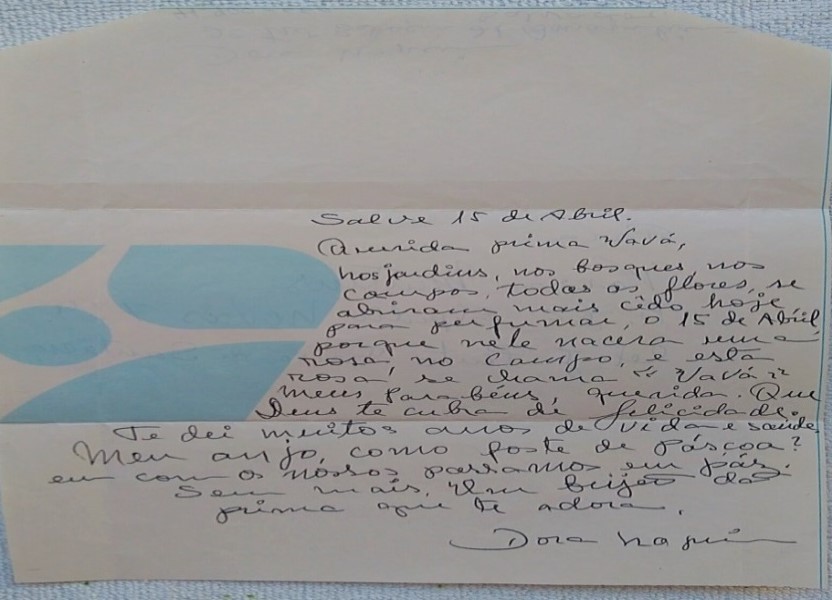 Salve 15 de Abril.
Querida prima Vavá,
nos jardins, nos bosques, nos
campos, todas as flores, se
abriram mais cêdo hoje
para perfumar, o 15 de Abril,
porque nele nacera uma
rosa, no campo, e está
rosa, se chama "Vavá"
Meus Parabéns, querida. Que
Deus te cubra de felicidade.
Te dei muitos anos de vida e saúde.
Meu anjo, como foste de páscoa?
eu com os nossos passamos em páz.
Sem mais, Um beijo da
prima que te adora.
Dora